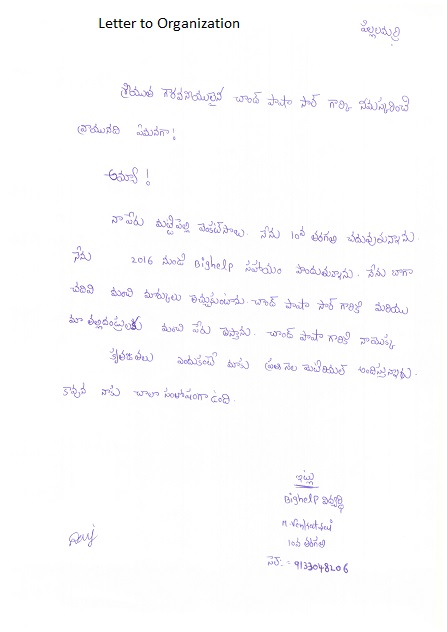 Letter to Organization
పిల్లలమర్రి
శ్రీయుత గౌరవనీయులైన చాంద్ పాషా సార్ గార్కి నమస్కరించి
వ్రాయునది ఏమనగా!
అయ్యా!
నా పేరు మట్టిపల్లి వెంకట్‌సాయి. నేను 10వ తరగతి చదువుతున్నాను.
నేను 2016 నుండి Bighelp సహాయం పొందుతున్నాను. నేను బాగా
చదివి మంచి మార్కులు తెచ్చుకుంటాను. చాంద్ పాషా సార్ గారికి మరియు
మా తల్లిదండ్రులకు మంచి పేరు తెస్తాను. చాంద్ పాషా గారికి నాయొక్క
కృతజ్ఞతలు ఎందుకంటే మాకు ప్రతి నెల మెటీరియల్ అందిస్తున్నారు.
కావున నాకు చాలా సంతోషంగా ఉంది.
ఇట్లు
Bighelp విద్యార్థి
M. Venkatsai
10వ తరగతి
సెల్ : 9133048206